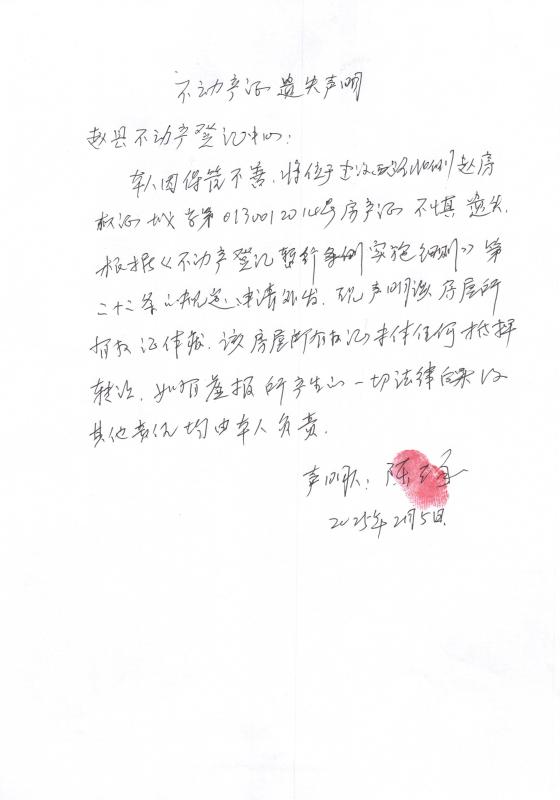 不动产证遗失声明
赵县不动产登记中心:
本人因保管不善,将位于 赵房
权证城字第0130012014号房产证不慎遗失,
根据《不动产登记暂行条例实施细则》第
二十二条的规定,申请补发,现声明该房屋所
有权证作废,该房屋所有权证未作任何抵押
转让,如有虚报所产生的一切法律后果及
其他责任均由本人负责.
声明人:陈
2025年2月5日